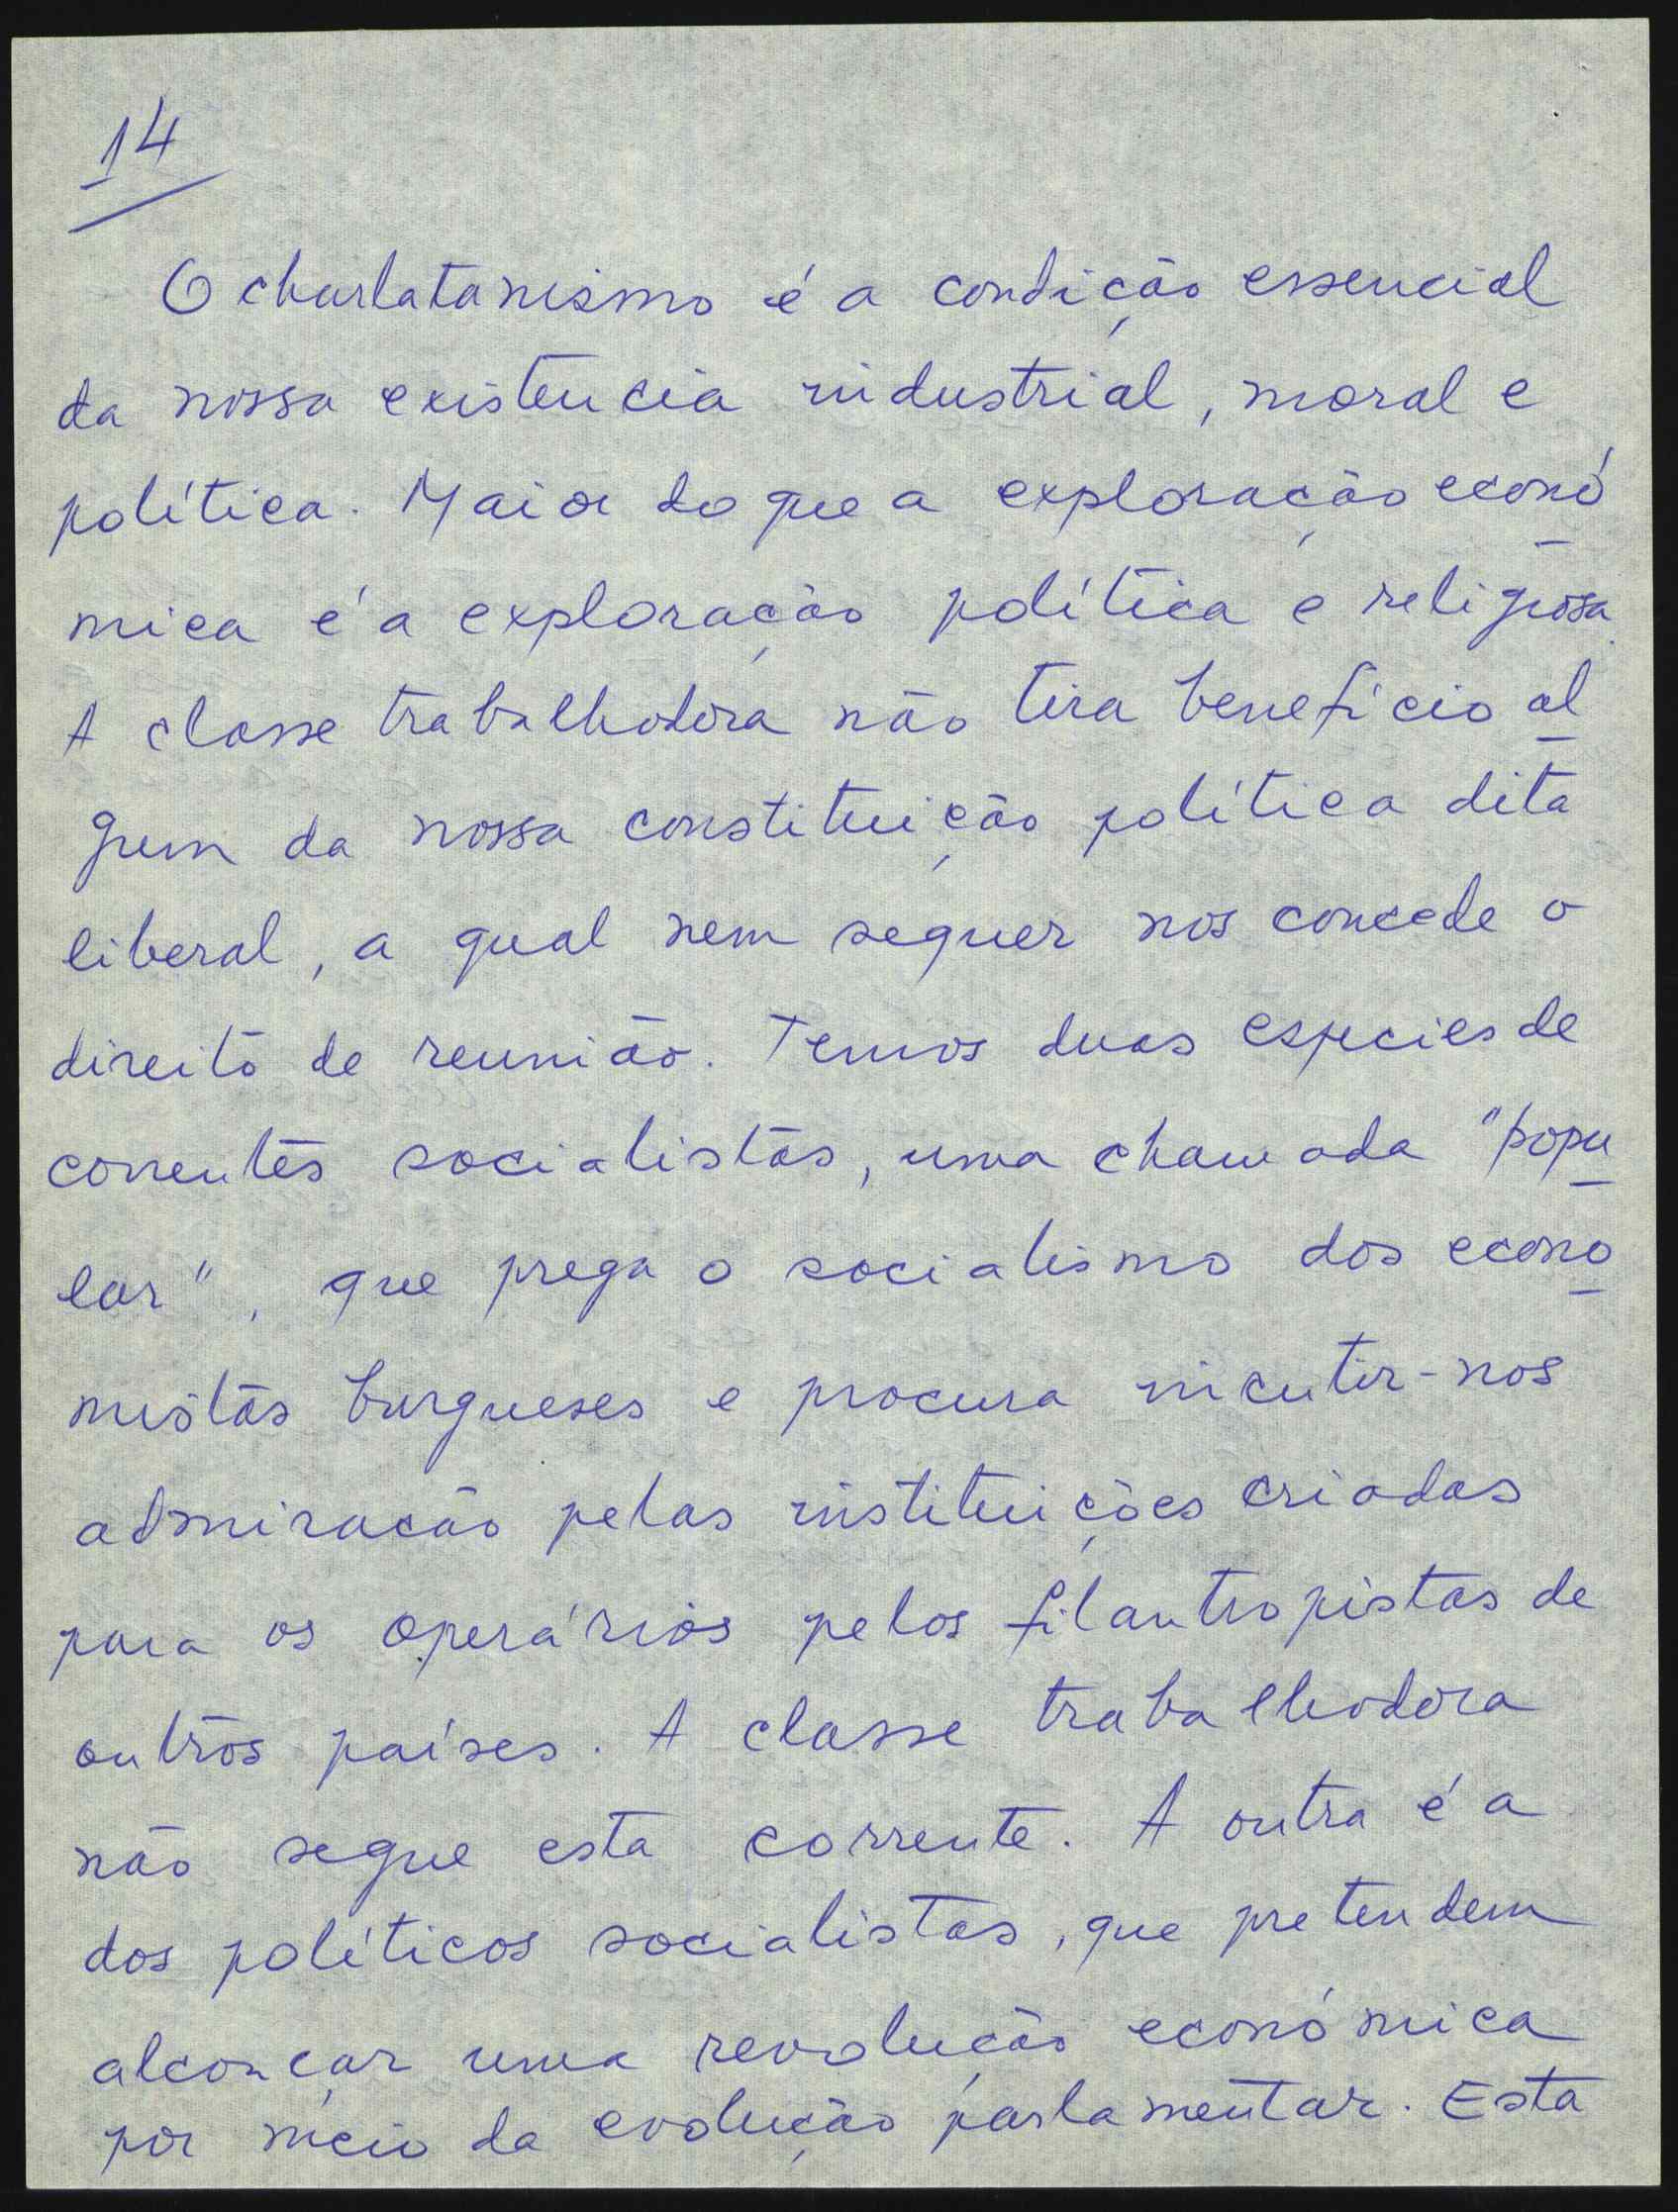 14
O charlatanismo é a condição essencial
da nossa existencia industrial, moral e
política. Maior do que a exploração econó
mica é a exploração política e religiosa.
A classe trabalhadora não tira benefício al
gum da nossa constituição política dita
liberal, a qual nem sequer nos concede o
direito de reunião. Temos duas especies de
correntes socialistas, uma chamada "popu
lar", que prega o socialismo dos econo
mistas burgueses e procura incutir-nos
admiracão pelas instituições criadas
para os operários pelos filantropistas de
outros países. A classe trabalhadora
não segue esta corrente. A outra é a
dos políticos socialistas, que pretendem
alcançar uma revolução económica
por meio da evolução parlamentar. Esta